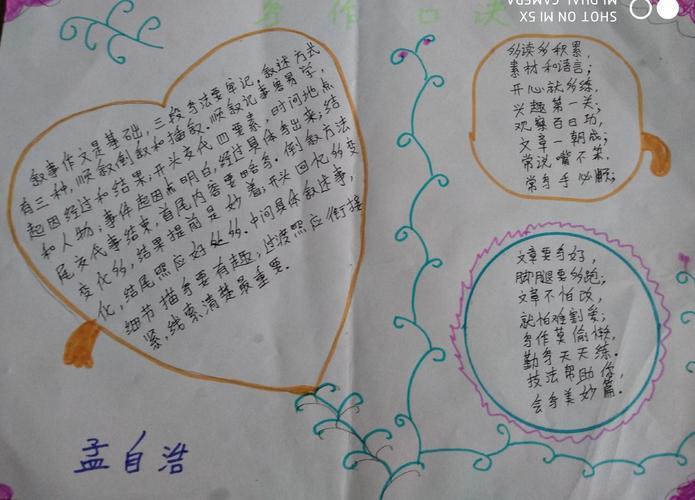 写作口诀
叙事作文是基础，三段写法要牢记。叙述方式
有三种，顺叙倒叙和插叙。顺叙记事容易学，
起因经过和结果；开头交代四要素，时间地点
和人物；事件起因点明白，经过具体写出来；结
尾交代事结束，首尾内容要略写。倒叙方法
变化多，结果提前是妙着；开头回忆多变
化，结尾照应好处多。中间具体叙述事，
细节描写要有趣，过渡照应衔接
紧，线索清楚最重要。
孟自浩
多读多积累，
素材和语言；
开心就多练，
兴趣第一关；
观察百日功，
文章一朝成；
常说嘴不笨，
常写手必顺；
文章要写好，
脚腿要多跑；
文章不怕改，
就怕难割爱；
写作莫偷懒，
勤写天天练。
技法帮助你，
会写美妙篇。
SHOT ON MI 5X
MI DUAL CAMERA